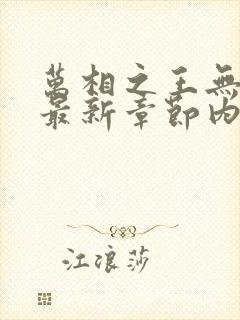 萬相之王無
最新章節內
江浪莎